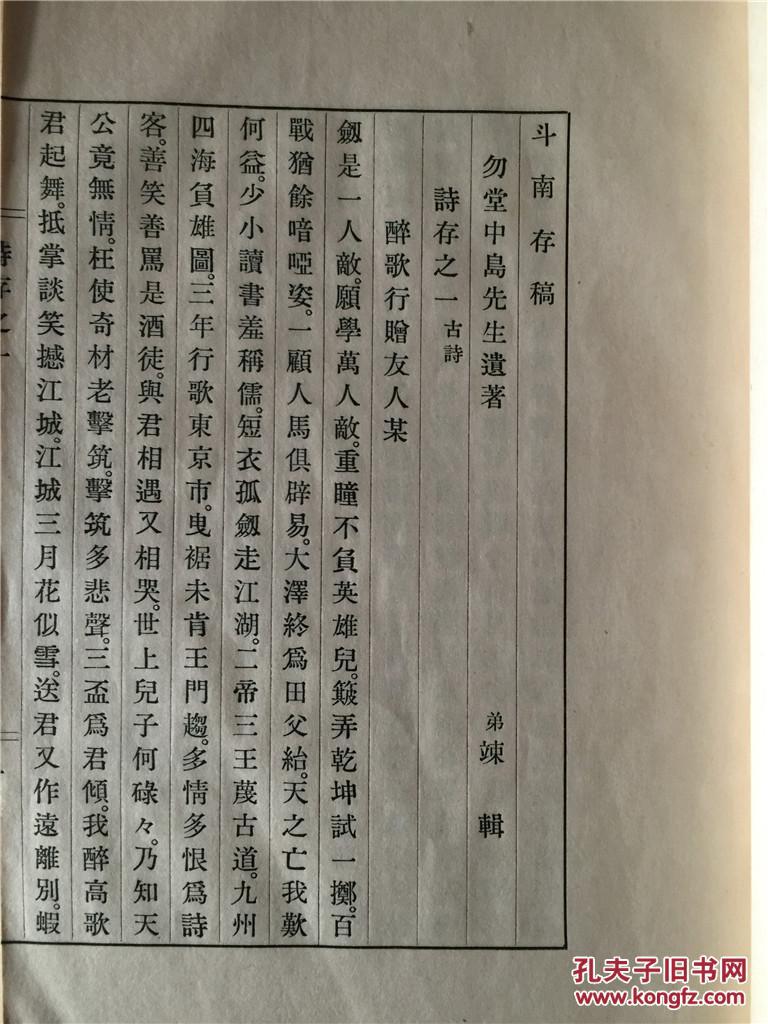 斗南存稿
勿堂中島先生遺著　弟竦輯
詩存之一 古詩
醉歌行贈友人某
劔是一人敵。願學萬人敵。重瞳不負英雄兒。簸弄乾坤試一擲。百
戰猶餘喑啞姿。一顧人馬俱辟易。大澤終爲田父紿。天之亡我歎
何益。少小讀書羞稱儒。短衣孤劔走江湖。二帝三王蔑古道。九州
四海負雄圖。三年行歌東京市。曳裾未肯王門趨。多情多恨爲詩
客。善笑善罵是酒徒。與君相遇又相哭。世上兒子何碌々。乃知天
公竟無情。枉使奇材老擊筑。擊筑多悲聲。三盃爲君傾。我醉高歌
君起舞。抵掌談笑撼江城。江城三月花似雪。送君又作遠離別。蝦
詩存之一
孔夫子旧书网
www.kongfz.com